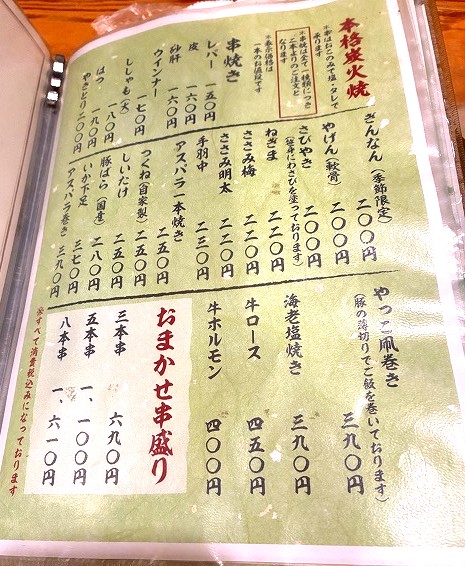 本格炭火焼
※串はおこのみで塩・タレで
承ります
※串焼は全て一種類につき
二本よりのご注文と
なります
※表示価格は
一本のお値段です
串焼き
レバー 一五〇円
皮 一六〇円
砂肝 一六〇円
ウインナー 一七〇円
ししゃも(大) 一八〇円
はつ 一九〇円
やきとり 二〇〇円
ぎんなん(季節限定) 二〇〇円
やげん(軟骨) 二〇〇円
さびやき 二〇〇円
(笹身にわさびを塗っております)
ねぎま 二二〇円
ささみ梅 二二〇円
ささみ明太 二二〇円
手羽中 二三〇円
アスパラ一本焼き 二五〇円
つくね(自家製) 二五〇円
しいたけ 二五〇円
豚ばら(国産) 二八〇円
いか下足 三七〇円
アスパラ巻き 三九〇円
やっこ凧巻き 三九〇円
(豚の薄切りでご飯を巻いております)
海老塩焼き 三九〇円
牛ロース 四五〇円
牛ホルモン 四〇〇円
おまかせ串盛り
三本串 六九〇円
五本串 一、一〇〇円
八本串 一、六一〇円
※すべて消費税込みになっております